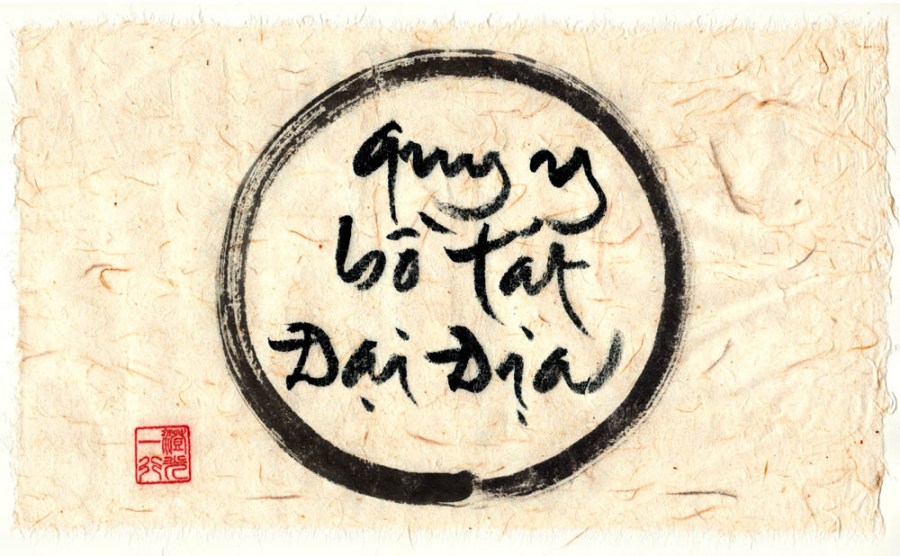 quy y
bồ Tát
Đại Địa
澄光
一行